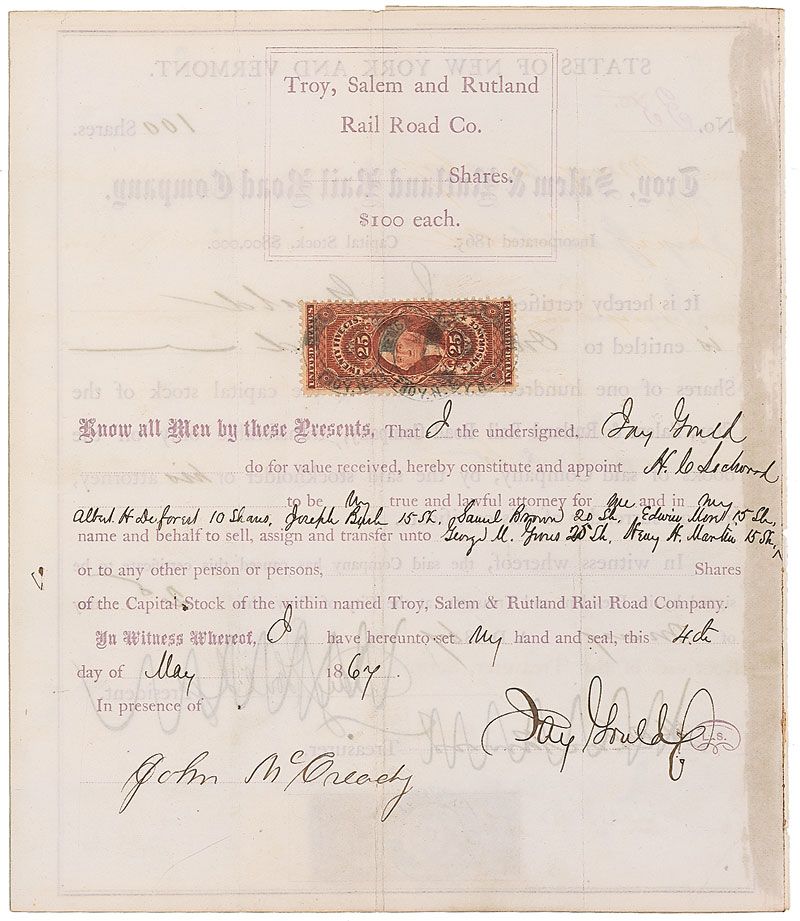 Troy, Salem and Rutland
Rail Road Co.
Shares.
$100 each.
25 25
Know all Men by these Presents, That I the undersigned, Jay Gould
do for value received, hereby constitute and appoint H. C. Lockwood
to be my true and lawful attorney for me and in my
Albert H Deforest 10 Shares, Joseph 15 Sh. Samuel Brown 20 Sh. Edwin 15 Sh.
name and behalf to sell, assign and transfer unto George M. 25 Sh, Henry H. Martin 15 Sh,
or to any other person or persons, Shares
of the Capital Stock of the within named Troy, Salem & Rutland Rail Road Company.
In Witness Whereof, I have hereunto set my hand and seal, this 4th
day of May 1867.
In presence of
Jay Gould L.S.
John McCready